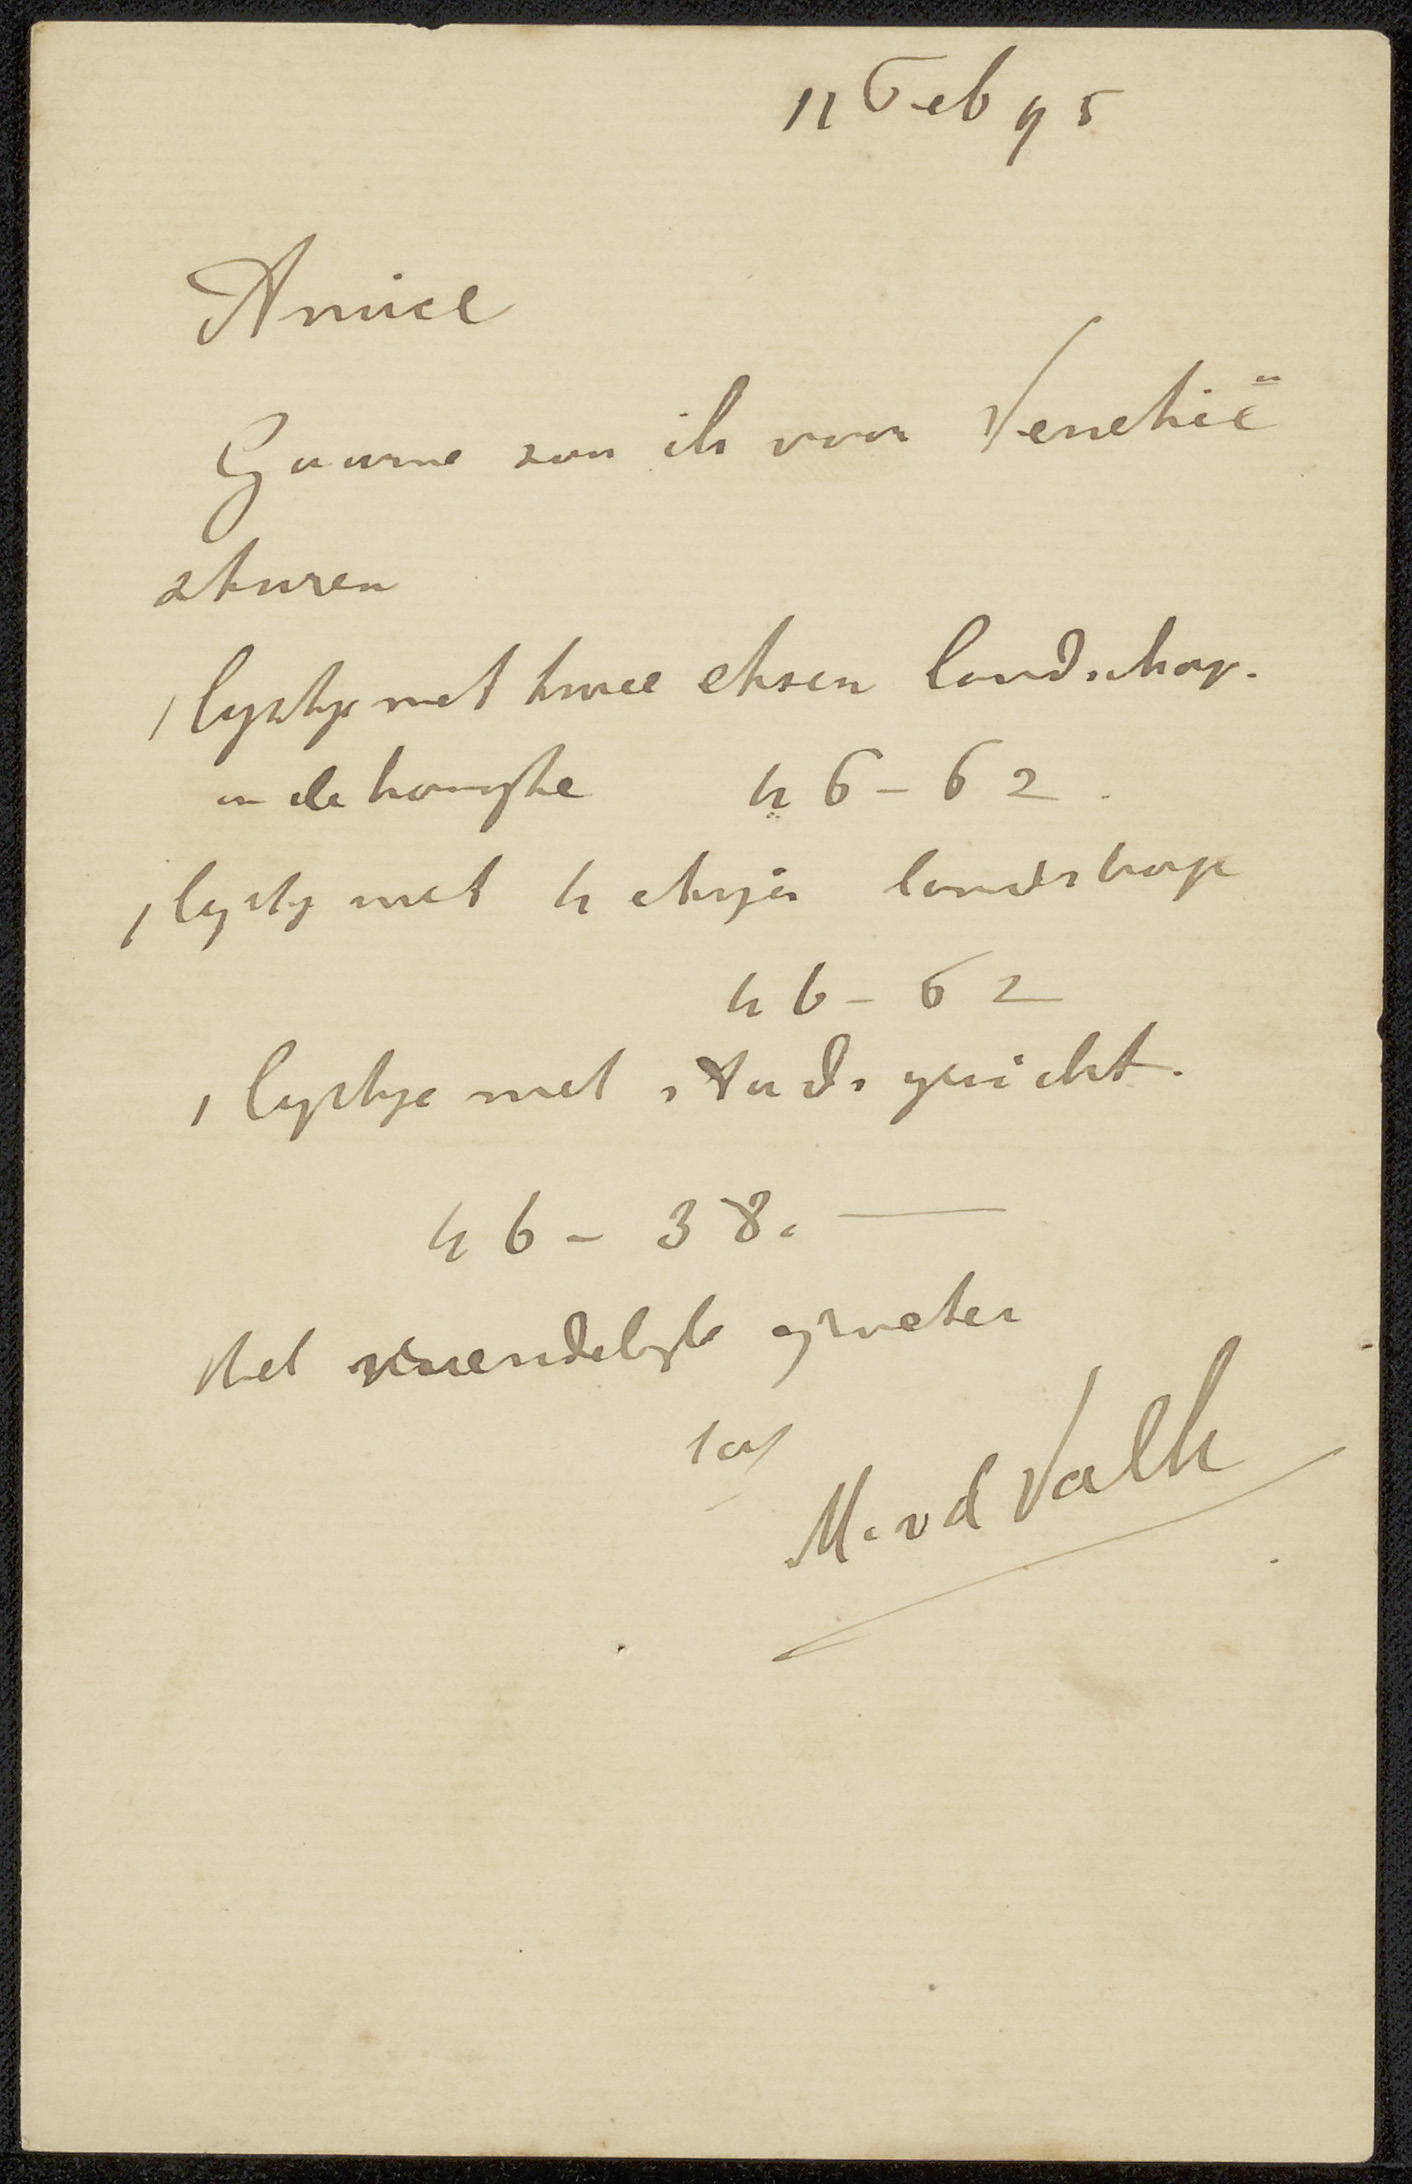 11 Feb 95
Amice
Gaarne zou ik voor Venetië
sturen
1 lystje met twee etsen landschap.
en de hoogte 46-62.
1 lystje met 4 etsjes landschap
46-62
1 lystje met stadsgezicht.
46-38.
Met vriendelyke groeten
M. vd Valk